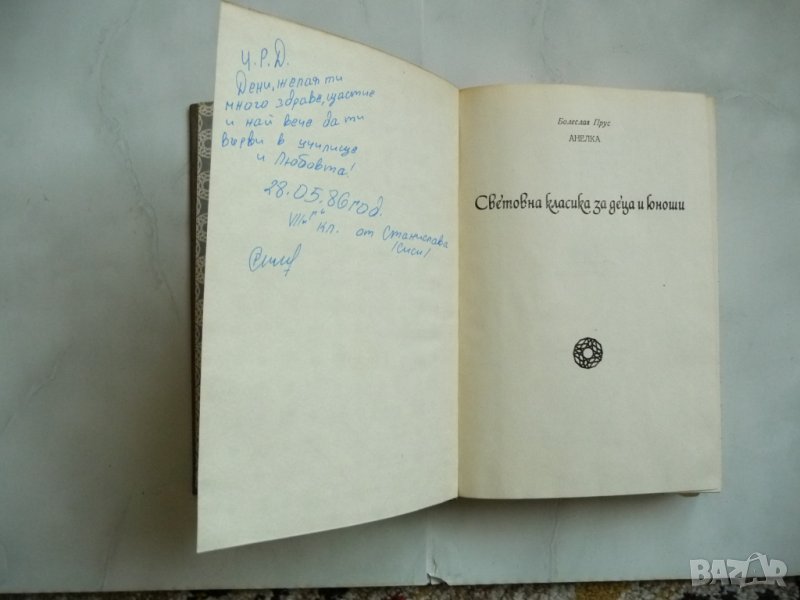 Ч.Р.Д.
Дени, желая ти
много здраве, щастие
и най вече да ти
върви в училище
и Любовта!
28.05.86 год.
VII "г" кл. от Станислава
/Сиси/
Болеслав Прус
АНЕЛКА
Световна класика за деца и юноши
BAZAR